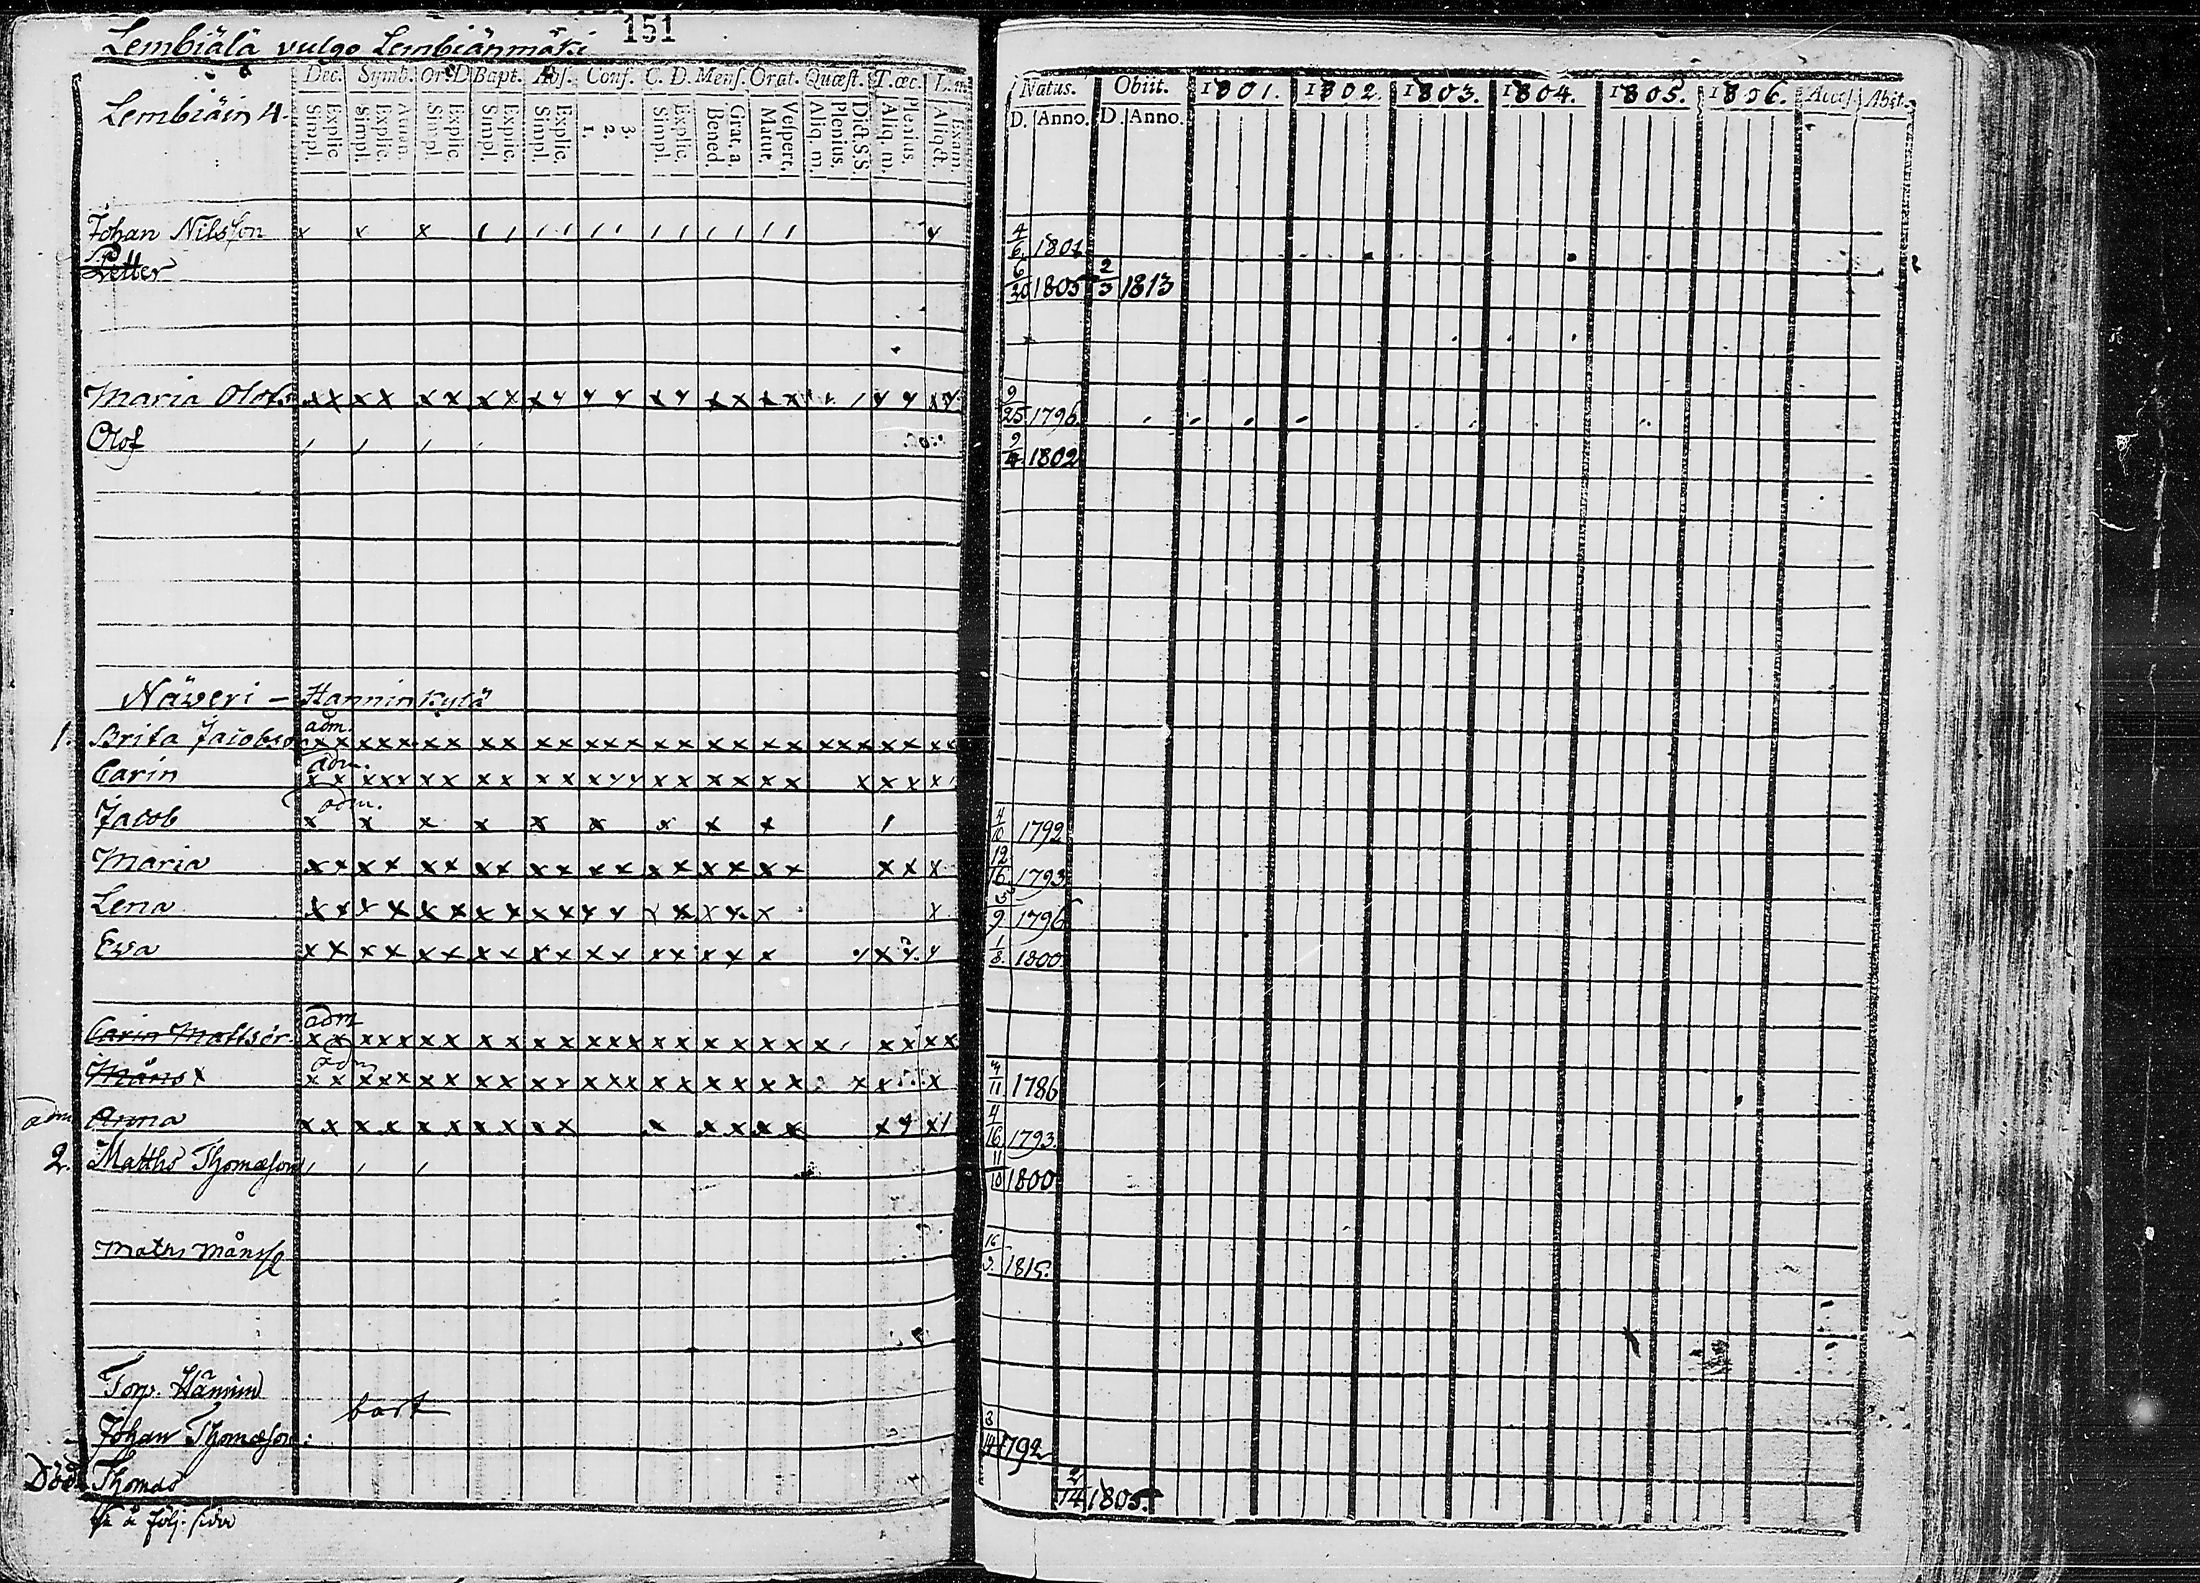 151
Lembiälä vulgo Lembiänmäki
Dec. Symb. Or. D Bapt. Abs. Conf. C. D. Mens. Orat. Quæst. T. œc. Natus. Obiit. 1801. 1802. 1803. 1804. 1805. 1806. Acces. Abit.
Lembiäin 4.
Simpl. Explic. Simpl. Explic. Simpl. Explic. Simpl. Explic. Simpl. Explic. 1. 2. 3. Simpl. Explic. Bened. Grat. a. Matut. Vespert. Aliq. m. Plenius. Dict. S. S. Aliq. m. Plenius. Exam. D. Anno. D. Anno.
Johan Nilsson 4/6 1801
Petter 6/20 1805 2/3 1813
Maria Olofs 9/25 1796
Olof 9/4 1802
Näweri – Hanninkylä
adm.
1. Brita Jacobs
adm.
Carin
adm.
Jacob 4/10 1792
Maria 12/16 1793
Lena 5/9 1796
Ewa 1/8 1800
adm
Carin Mattsdr
adm
Måns 1786
adm Anna 4/16 1793.
2. Matths Thomasson 11/10 1800
Maths Månss 16/3 1815.
Torp. Hännin
bort
Johan Thomasson: 3/14 1792
Död Thomas 2/14 1805.
å följ: sida